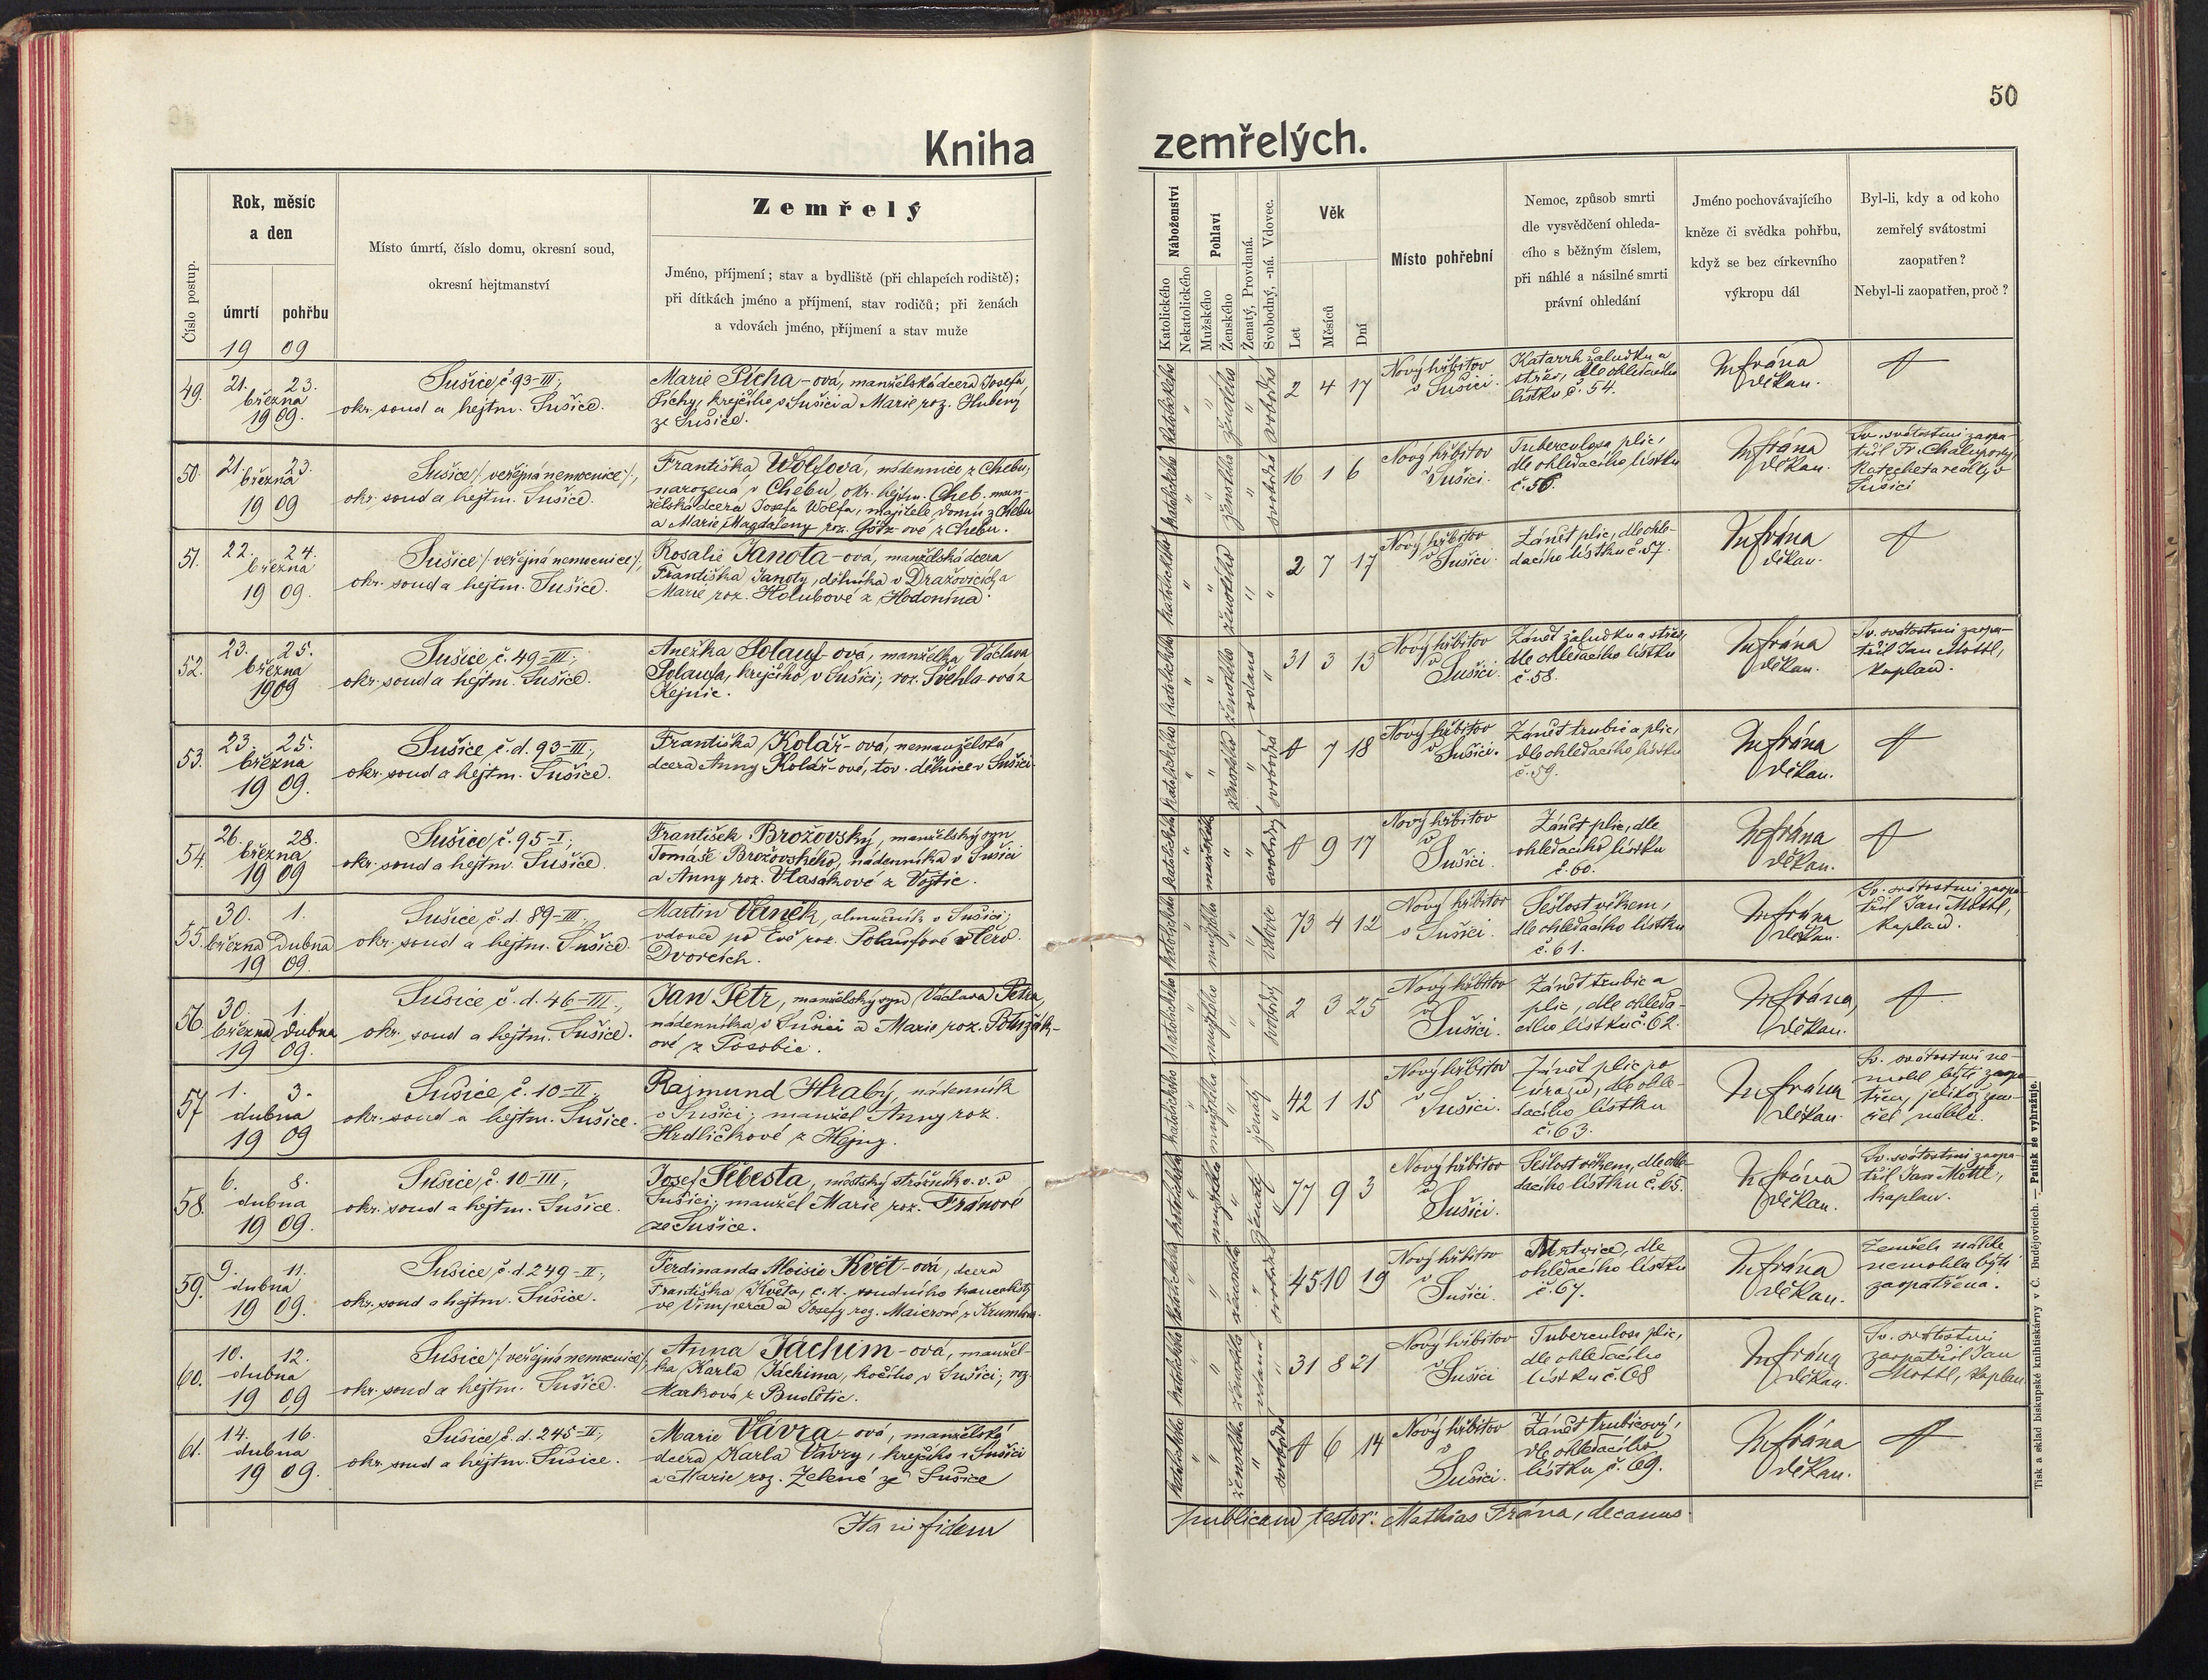 50
Kniha zemřelých.
Číslo postup.
Rok, měsíc
a den
úmrtí
pohřbu
19 09
Místo úmrtí, číslo domu, okresní soud,
okresní hejtmanství
Zemřelý
Jméno, příjmení; stav a bydliště (při chlapcích rodiště);
při dítkách jméno a příjmení, stav rodičů; při ženách
a vdovách jméno, příjmení a stav muže
Náboženství
Katolického
Nekatolického
Pohlaví
Mužského
Ženského
Ženatý, Provdaná.
Svobodný, -ná. Vdovec.
Věk
Let
Měsíců
Dní
Místo pohřební
Nemoc, způsob smrti
dle vysvědčení ohleda-
cího s běžným číslem,
při náhlé a násilné smrti
právní ohledání
Jméno pochovávajícího
kněze či svědka pohřbu,
když se bez církevního
výkropu dál
Byl-li, kdy a od koho
zemřelý svátostmi
zaopatřen?
Nebyl-li zaopatřen, proč?
49.
21. 23.
března
1909.
Sušice, č 93-III.,
okr. soud a hejtm. Sušice.
Marie Pícha-ová, manželská dcera Josefa
Píchy, krejčího v Sušici a Marie roz. Hubený
ze Sušice.
katolického
ženského
svobodná
2 4 17
Nový hřbitov
v Sušici.
Katarrh žaludku a
střev, dle ohledacího
lístku č. 54.
M Frána
děkan.
50.
21. 23.
března
19 09
Sušice /: veřejná nemocnice :/,
okr. soud a hejtm. Sušice.
Františka Wolfová, nádennice z Chebu,
narozená v Chebu, okr. hejtm. Cheb, man-
želská dcera Josefa Wolfa, majitele domu z Chebu
a Marie Magdaleny roz. Götz-ové z Chebu.
katolického
ženského
svobodná
16 1 6
Nový hřbitov
v Sušici.
Tuberculosa plic,
dle ohledacího lístku
č. 56.
M Frána
děkan.
Sv. svátostmi zaopa-
třil Fr. Chalupný,
katecheta reálky v
Sušici
51.
22. 24.
března
19 09.
Sušice /: veřejná nemocnice :/,
okr. soud a hejtm. Sušice.
Rosalie Janota-ová, manželská dcera
Františka Janoty, dělníka v Dražovicích a
Marie roz. Holubové z Hodonína.
katolického
ženského
2 7 17
Nový hřbitov
v Sušici.
Zánět plic, dle ohle-
dacího lístku č. 57.
M Frána
děkan.
52.
23. 25.
března
1909
Sušice, č. 49-III.,
okr. soud a hejtm. Sušice.
Anežka Solauf-ová, manželka Václava
Solaufa, krejčího v Sušici; roz. Švehla-ová z
Kejnic.
katolického
ženského
vdaná
31 3 13
Nový hřbitov
v
Sušici.
Zánět žaludku a střev,
dle ohledacího lístku
č. 58.
M Frána
děkan.
Sv. svátostmi zaopa-
třil Jan Mottl,
kaplan.
53.
23. 25.
března
19 09.
Sušice č. d. 93-III.,
okr. soud a hejtm. Sušice.
Františka Kolář-ová, nemanželská
dcera Anny Kolář-ové, tov. dělnice v Sušici.
katolického
ženského
svobodná
7 18
Nový hřbitov
v Sušici.
Zánět trubic a plic,
dle ohledacího lístku
č. 59.
M Frána
děkan.
54.
26. 28.
března
19 09
Sušice, č. 95-I.,
okr. soud a hejtm. Sušice.
František Brožovský, manželský syn
Tomáše Brožovského, nádenníka v Sušici
a Anny roz. Vlasákové z Vojtic.
katolického
mužského
svobodný
9 17
Nový hřbitov
v
Sušici.
Zánět plic, dle
ohledacího lístku
č. 60.
M Frána
děkan.
55.
30. 1.
března dubna
19 09.
Sušice, č. d. 89-III.,
okr. soud a hejtm. Sušice.
Martin Vaněk, almužník v Sušici;
vdovec po Evě roz. Solaufové z Červ.
Dvorcích.
katolického
mužského
vdovec
73 4 12
Nový hřbitov
v Sušici.
Sešlost věkem,
dle ohledacího lístku
č. 61.
M Frána
děkan.
Sv. svátostmi zaopa-
třil Jan Mottl,
kaplan.
56.
30. 1.
března dubna
19 09.
Sušice č. d. 46-III.,
okr. soud a hejtm. Sušice.
Jan Petr, manželský syn Václava Petra,
nádenníka v Sušici a Marie roz. Boužák-
ové z Sosobic.
katolického
mužského
svobodný
2 3 25
Nový hřbitov
v
Sušici.
Zánět trubic a
plic, dle ohleda-
cího lístku č. 62.
M Frána,
děkan.
57.
1. 3.
dubna
19 09
Sušice, č. 10-II.,
okr. soud a hejtm. Sušice.
Rajmund Hrabý, nádenník
v Sušici; manžel Anny roz.
Hrdličkové z Hejny.
katolického
mužského
ženatý
42 1 15
Nový hřbitov
v
Sušici.
Zánět plic po
úrazu, dle ohle-
dacího lístku
č. 63.
M Frána
děkan.
Sv. svátostmi ne-
mohl býti zaopa-
třen, jelikož zem-
řel náhle.
58.
6. 8.
dubna
19 09.
Sušice, č. 10-III.,
okr. soud a hejtm. Sušice.
Josef Šebesta, městský strážník v. v. v
Sušici; manžel Marie roz. Fránové
ze Sušice.
katolického
mužského
ženatý
77 9 3
Nový hřbitov
v
Sušici.
Sešlost věkem, dle ohle-
dacího lístku č. 65.
M Frána
děkan.
Sv. svátostmi zaopa-
třil Jan Mottl,
kaplan.
59.
9. 11.
dubna
19 09.
Sušice, č. d. 249-II.,
okr. soud a hejtm. Sušice.
Ferdinanda Aloisie Květ-ová, dcera
Františka Května, c. k. soudního kancelisty
ve Vimperce a Josefy roz. Maierové z Krumlova.
katolického
ženského
svobodná
45 10 19
Nový hřbitov
v
Sušici.
Mrtvice, dle
ohledacího lístku
č. 67.
M Frána
děkan.
Zemřela náhle
nemohla býti
zaopatřena.
60.
10. 12.
dubna
19 09
Sušice /: veřejná nemocnice :/,
okr. soud a hejtm. Sušice.
Anna Jáchim-ová, manžel-
ka Karla Jáchima, kočího v Sušici; roz.
Marková z Budětic.
katolického
ženského
vdaná
31 8 21
Nový hřbitov
v
Sušici
Tuberculosa plic,
dle ohledacího
lístku č. 68
M Frána
děkan.
Sv. svátostmi
zaopatřil Jan
Mottl, kaplan.
61.
14. 16.
dubna
19 09.
Sušice, č. d. 245-II.,
okr. soud a hejtm. Sušice.
Marie Vávra-ová, manželská
dcera Karla Vávry, krejčího v Sušici
a Marie roz. Zelené ze Sušice
katolického
ženského
svobodná
6 14
Nový hřbitov
v
Sušici.
Zánět trubicový,
dle ohledacího
lístku č. 69.
M Frána
děkan.
Ita in fidem publicam testor: Mathias Frána, decanus.
Tisk a sklad biskupské knihtiskárny v Č. Budějovicích. — Patisk se vyhražuje.